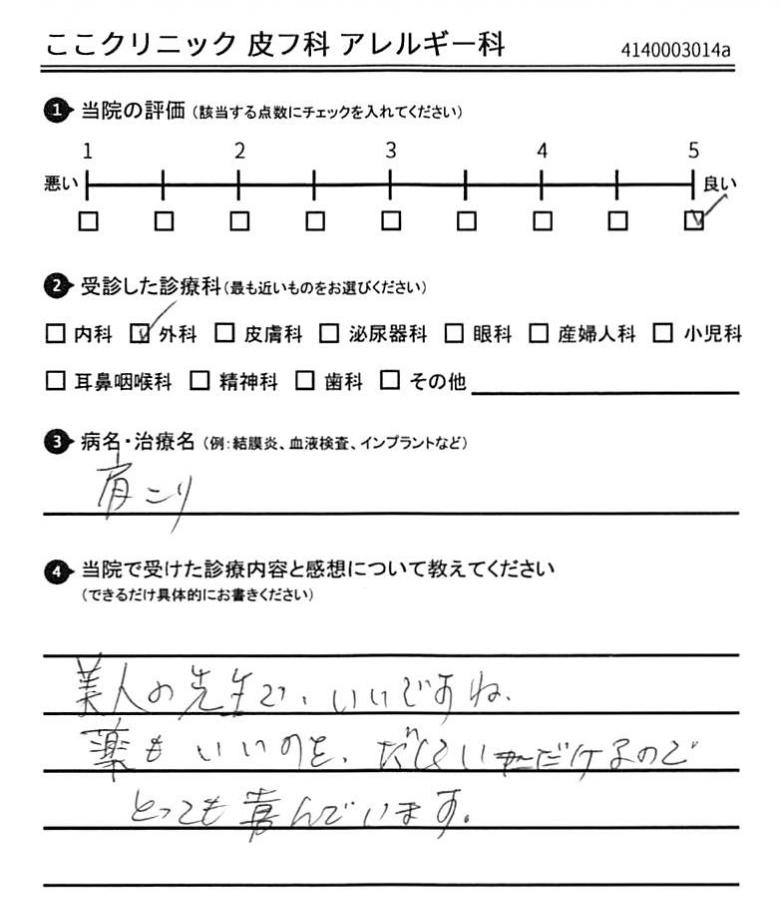 ここクリニック 皮フ科 アレルギー科 4140003014a
1 当院の評価（該当する点数にチェックを入れてください）
1 2 3 4 5
悪い 良い
2 受診した診療科（最も近いものをお選びください）
内科 外科 皮膚科 泌尿器科 眼科 産婦人科 小児科
耳鼻咽喉科 精神科 歯科 その他
3 病名・治療名（例:結膜炎、血液検査、インプラントなど）
肩こり
4 当院で受けた診療内容と感想について教えてください
（できるだけ具体的にお書きください）
美人の先生で、いいですね、
薬もいいのを、だしていただけるので
とっても喜んでいます。